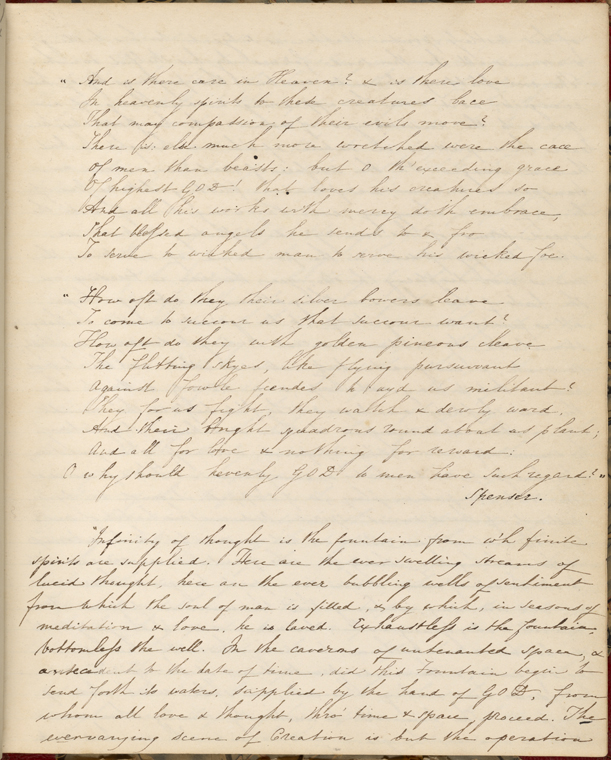 " And is there care in Heaven? & is there love
In heavenly spirits to these creatures bace
That may compassion of their evils move?
There is: else much more wretched were the cace
Of men than beasts: but O th' exceeding grace
Of highest GOD! that loves his creatures so
And all his works with mercy doth embrace,
That blessed angels he sends to & fro
To serve to wicked man to serve his wicked foe.
" How oft do they their silver bowers leave
To come to succour us that succour want?
How oft do they with golden pineons cleave
The flitting skyes, like flying pursuivant
Against fowle feendes to ayd us militant?
They for us fight, they watch & dewly ward,
And their bright squadrons round about us plant;
And all for love & nothing for reward:
O why should hevenly GOD to men have such regard? "
Spenser.
"Infinity of thought is the fountain from wh finite
spirits are supplied. Here are the ever swelling streams of
lucid thought, here are the ever bubbling wells of sentiment
from which the soul of man is filled, & by which, in seasons of
meditation & love, he is laved. Exhaustless is the fountain,
bottomless the well. In the caverns of untenanted space, &
antecedent to the date of time, did this Fountain begin to
send forth its waters, supplied by the hand of GOD, from
whom all love & thought, thro' time & space, proceed. The
evervarying scene of Creation is but the operation